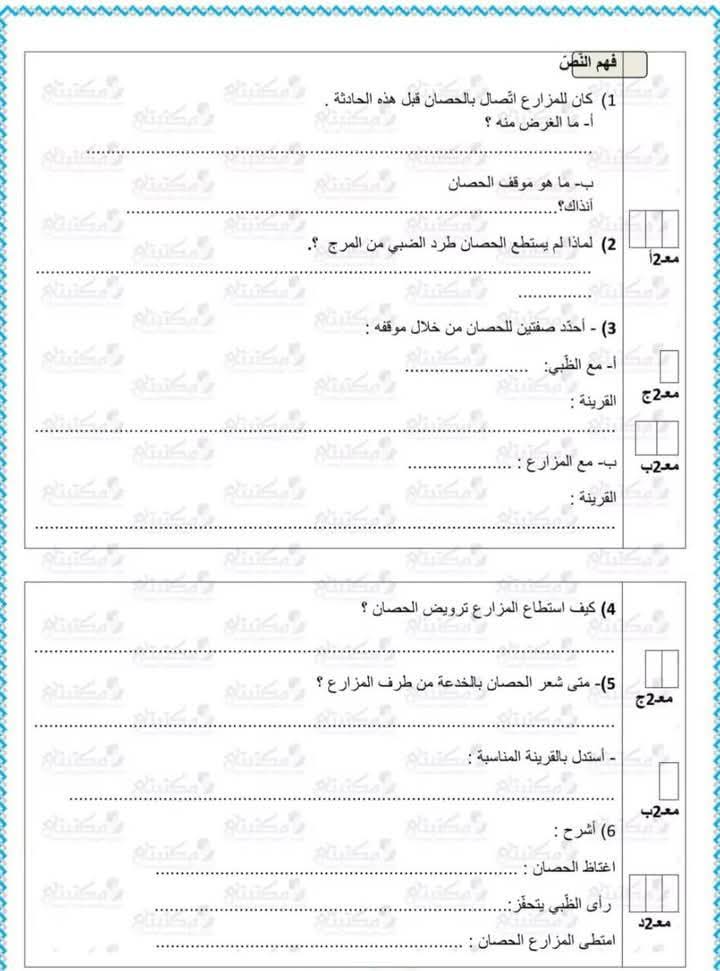 فهم النّصّ
1) كان للمزارع اتّصال بالحصان قبل هذه الحادثة .
أ- ما الغرض منه ؟
ب- ما هو موقف الحصان
آنذاك؟
2) لماذا لم يستطع الحصان طرد الضبي من المرج ؟.
معـ2أ
3) - أحدّد صفتين للحصان من خلال موقفه :
أ- مع الظّبي:
معـ2ج
القرينة :
ب- مع المزارع :
معـ2ب
القرينة :
4) كيف استطاع المزارع ترويض الحصان ؟
5)- متى شعر الحصان بالخدعة من طرف المزارع ؟
معـ2ج
- أستدل بالقرينة المناسبة :
معـ2ب
6) أشرح :
اغتاظ الحصان :
رأى الظّبي يتحفّز:
معـ2د
امتطى المزارع الحصان :